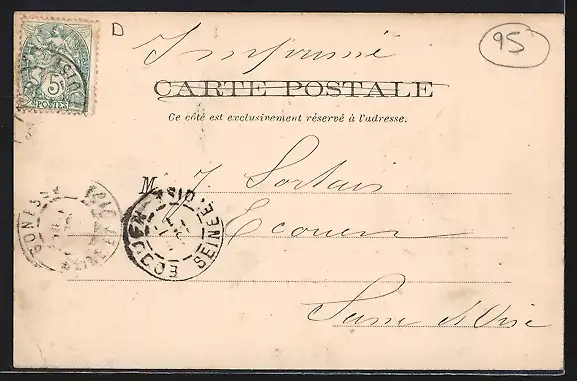 D
Imprimé
95
5c
POSTES
CARTE POSTALE
Ce côté est exclusivement réservé à l'adresse.
M. J. Sortais
Ecouen
Seine et Oise
ECOUEN
SEINE-ET-OISE